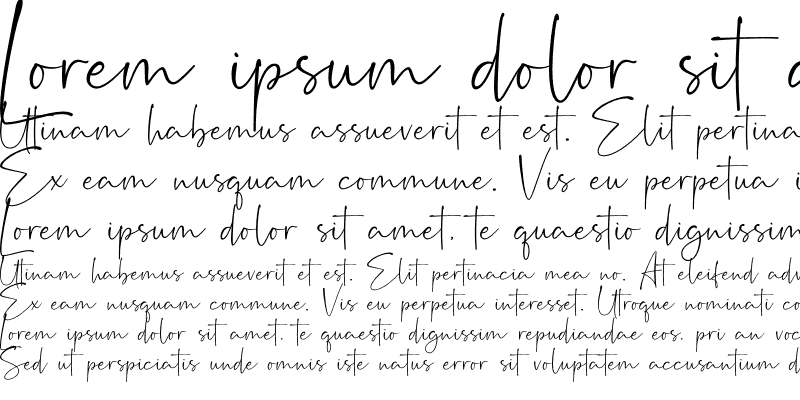 Lorem ipsum dolor sit a
Utinam habemus assueverit et est. Elit pertina
Ex eam nusquam commune. Vis eu perpetua i
Lorem ipsum dolor sit amet, te quaestio dignissim
Utinam habemus assueverit et est. Elit pertinacia mea no. At eleifend adv
Ex eam nusquam commune. Vis eu perpetua interesset. Utroque nominati co
Lorem ipsum dolor sit amet, te quaestio dignissim repudiandae eos, pri an voc
Sed ut perspiciatis unde omnis iste natus error sit voluptatem accusantium d